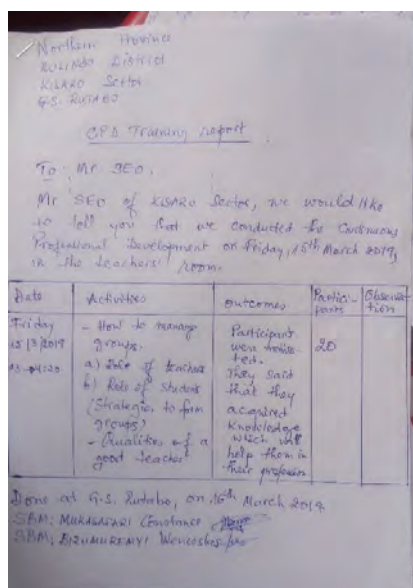 Northern Province
RULINDO District
KISARO Sector
G.S. RUTABO
CPD Training report
To: Mr SEO.
Mr SEO of KISARO Sector, we would like
to tell you that we conducted the Continuous
Professional Development on Friday, 15th March 2019,
in the teachers' room.
Date
Activities
Outcomes
Partici-
pants
Observa-
tion
Friday
15/3/2019
03-04:20
- How to manage
groups.
a) Role of teachers
b) Role of student
(Strategies to form
groups)
- Qualities of a
good teacher
Participant
were
They said
that they
acquired
knowledge
which will
help them in
their profession
20
Done at G.S. Rutabo, on 16th March 2019
SBM: Constance
SBM: